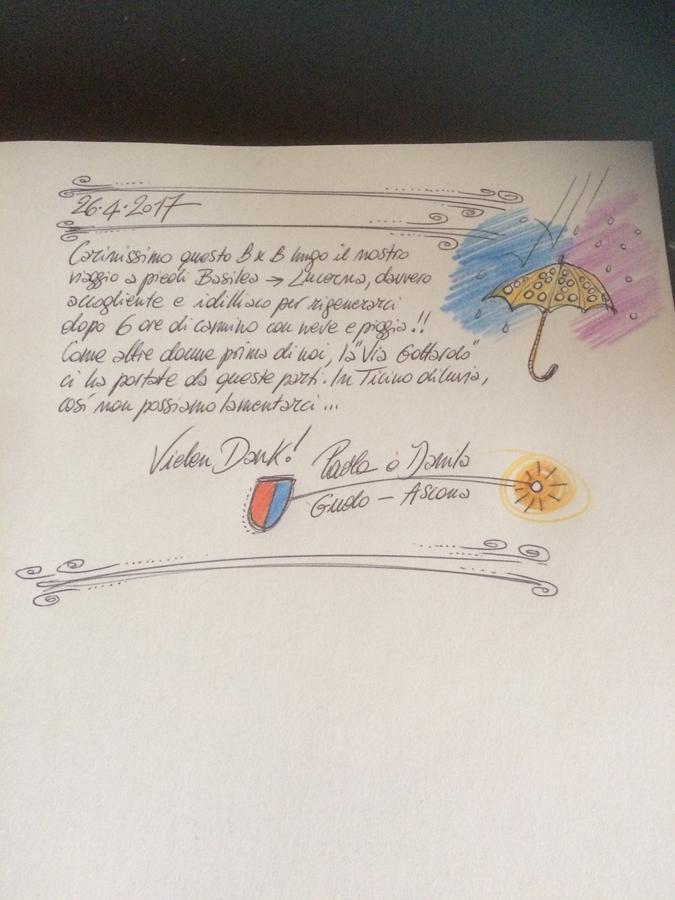 26.4.2017
Carinissimo questo B x B lungo il nostro
viaggio a piedi Basilea → Lucerna, davvero
accogliente e idilliaco per rigenerarci
dopo 6 ore di camino con neve e pioggia!!
Come altre donne prima di noi, la "Via Gottardo"
ci ha portate da queste parti. In Ticino diluvia,
così non possiamo lamentarci...
Vielen Dank! Paola e Danila
Gudo - Ascona